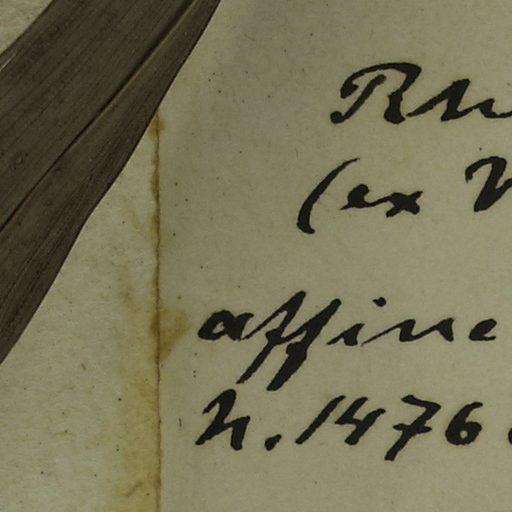 (ex
affine
n. 1476